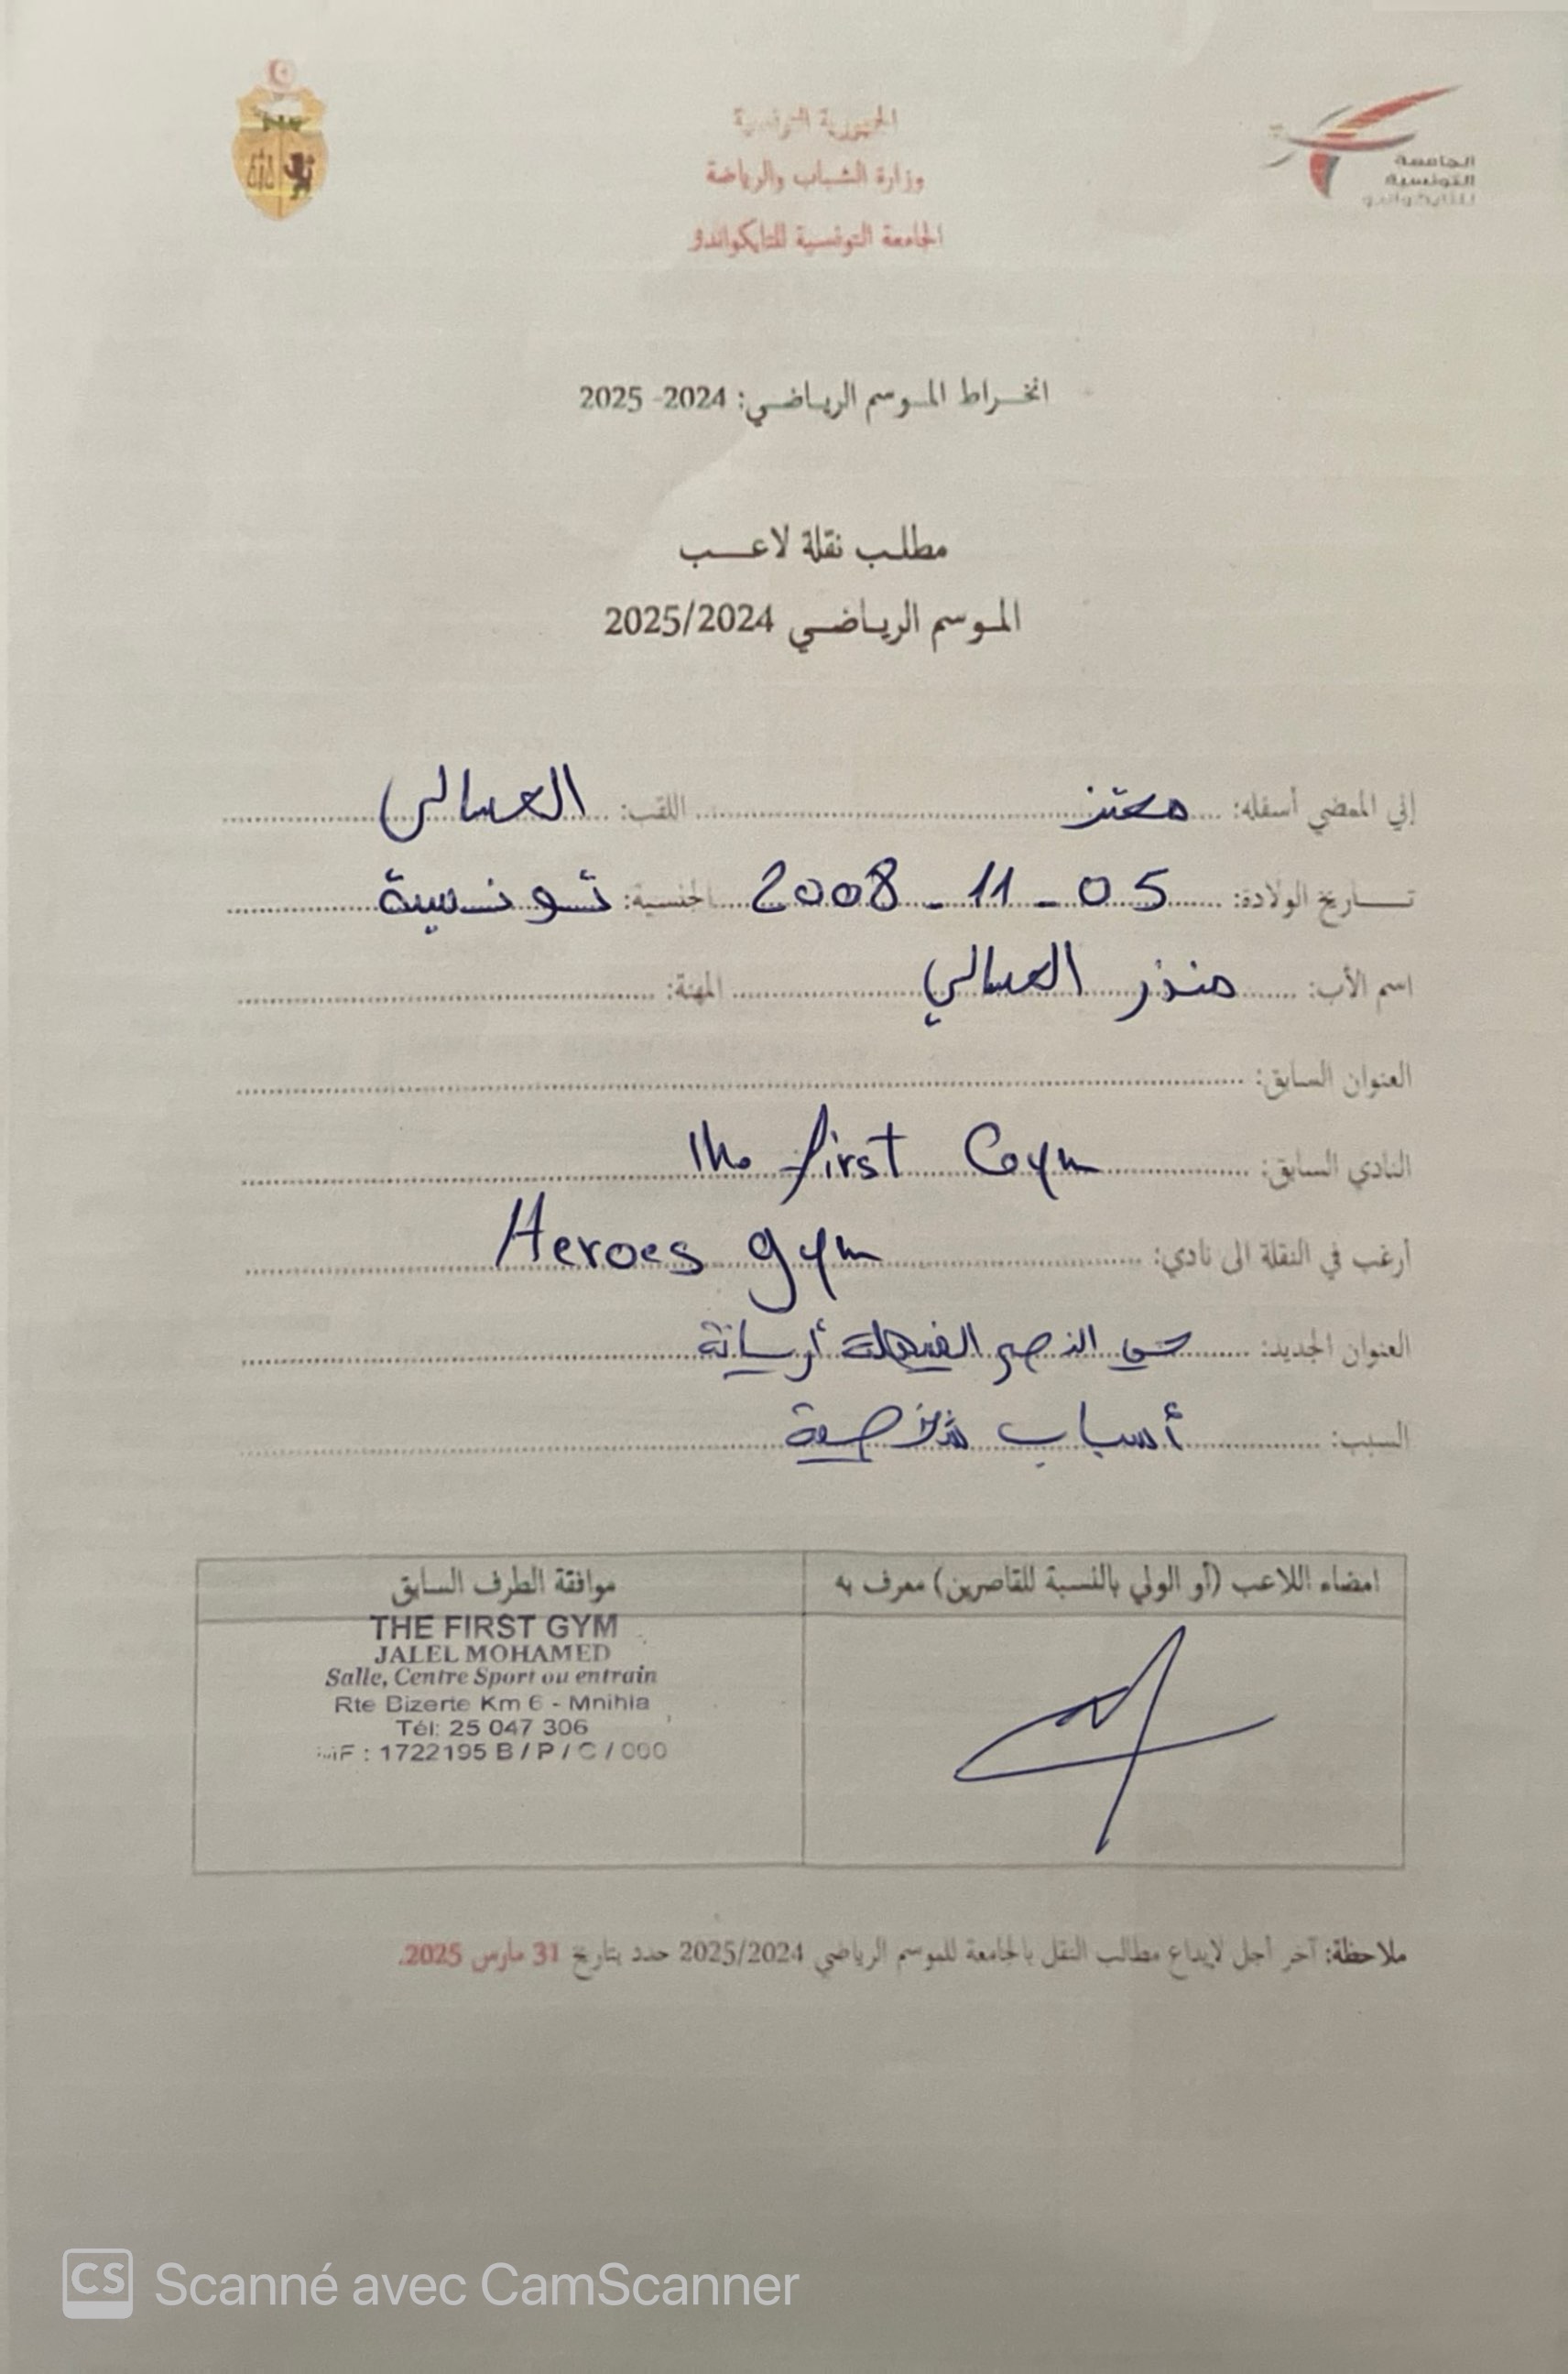 الجمهورية التونسية
وزارة الشباب والرياضة
الجامعة التونسية للتايكواندو
الجامعة
التونسية
للتايكواندو
انخراط الموسم الرياضي: 2024- 2025
مطلب نقلة لاعب
الموسم الرياضي 2025/2024
إني الممضي أسفله: معتز اللقب: العسالي
تاريخ الولادة: 05 - 11 - 2008 الجنسية: تونسية
اسم الأب: منذر العسالي المهنة:
العنوان السابق:
النادي السابق: The first Gym
أرغب في النقلة الى نادي: Heroes gym
العنوان الجديد: حي النصر المنيهلة أريانة
السبب: أسباب شخصية
امضاء اللاعب (أو الولي بالنسبة للقاصرين) معرف به
موافقة الطرف السابق
THE FIRST GYM
JALEL MOHAMED
Salle, Centre Sport ou entrain
Rte Bizerte Km 6 - Mnihla
Tél: 25 047 306
MF : 1722195 B / P / C / 000
ملاحظة: آخر أجل لايداع مطالب النقل بالجامعة للموسم الرياضي 2025/2024 حدد بتاريخ 31 مارس 2025.
CS Scanné avec CamScanner